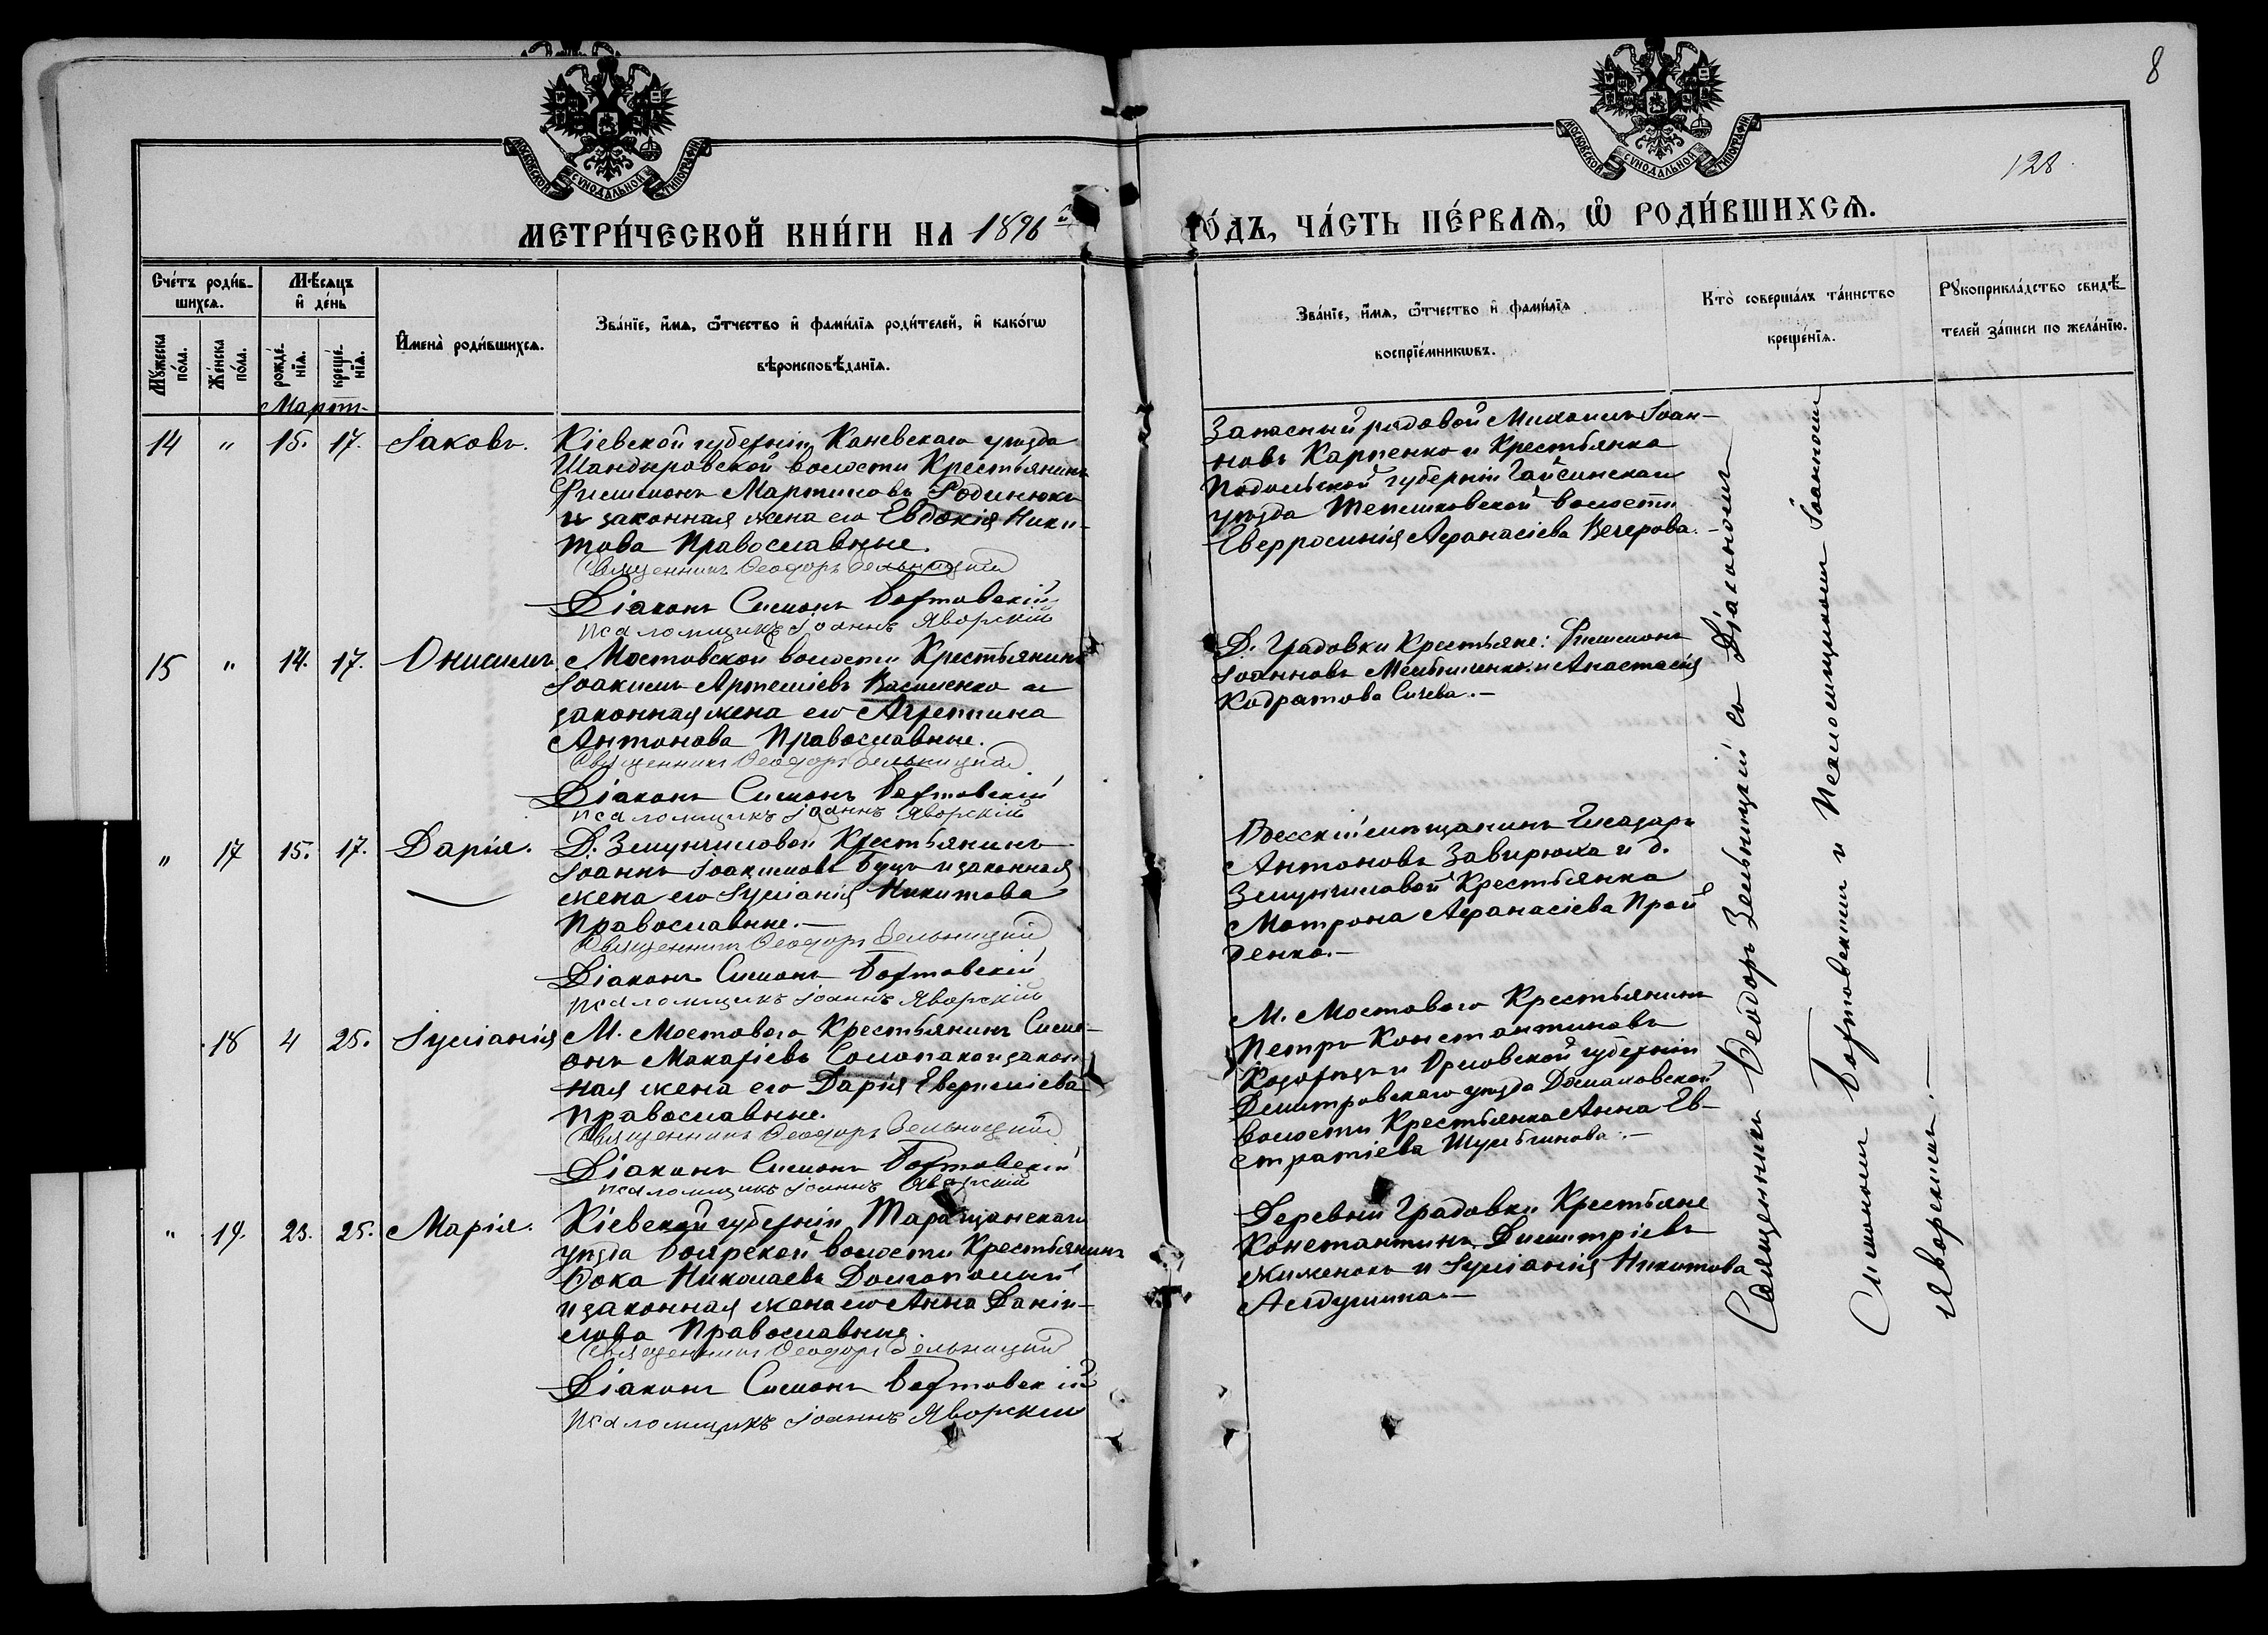 8
128.
МОСКОВСКОЙ СѴНОДАЛЬНОЙ ТИПОГРАФІИ
МОСКОВСКОЙ СѴНОДАЛЬНОЙ ТИПОГРАФІИ
МЕТРИ́ЧЕСКОЙ КНИ́ГИ НА 1896 й
ГО́ДЪ, ЧА́СТЬ ПЕ́РВАѦ, Ѽ РОДИ́ВШИХСѦ.
Сче́тъ роди́в-
шихсѧ.
Мꙋ́жеска по́ла.
Же́нска по́ла.
Мѣ́сѧцъ
и҆ де́нь
рожде́-
нїѧ.
креще́-
нїѧ.
И҆мена̀ роди́вшихсѧ.
Зва́нїе, и҆́мѧ, ѻ҆́тчество и҆ фами́лїѧ роди́телей, и҆ како́гѡ
вѣроисповѣ́данїѧ.
Зва́нїе, и҆́мѧ, ѻ҆́тчество и҆ фами́лїѧ
воспрїе́мникѡвъ.
Кто̀ соверша́лъ та́инство
креще́нїѧ.
Рꙋкоприкла́дство свидѣ́-
телей за́писи по жела́нїю.
Мартъ
14 " 15. 17. Іаковъ.
Кіевской губерніи Каневскаго уѣзда
Шандыровской волости Крестьянинъ
Филимонъ Мартиновъ Родинюкъ
и законная жена его Евдокія Ники-
това Православные.
Священникъ Ѳеодоръ Зельницкій
Діаконъ Симонъ Бортовскій
Псаломщикъ Іоаннъ Яворскій
Запасный рядовой Михаилъ Іоан-
новъ Карпенко и Крестьянка
Подольской губерніи Гайсинскаго
уѣзда Тепликовской волости
Евфросинія Афанасіева Вечерова.-
15 " 14. 17. Онисимъ.
Мостовской волости Крестьянинъ
Іоакимъ Артеміевъ Василенко и
законная жена его Агреппина
Антонова Православные.
Священникъ Ѳеодоръ Зельницкій
Діаконъ Симонъ Бортовскій
Псаломщикъ Іоаннъ Яворскій
Д. Градовки Крестьяне: Филимонъ
Іоанновъ Мельниченко и Анастасія
Кодратова Сичева.-
" 17 15. 17. Дарія.
Д. Змунчиловой Крестьянинъ
Іоаннъ Іоакимовъ Буцъ и законная
жена его Іуліанія Никитова
Православные.-
Священникъ Ѳеодоръ Зельницкій
Діаконъ Симонъ Бортовскій
Псаломщикъ Іоаннъ Яворскій
Одесскій мѣщанинъ Елеазаръ
Антоновъ Завирюха и д.
Змунчиловой Крестьянка
Матрона Афанасіева Прой
денко.-
18 4 25. Іуліанія
М. Мостового Крестьянинъ Симе-
онъ Макаріевъ Соломахо и закон
ная жена его Дарія Евфиміева
Православные.
Священникъ Ѳеодоръ Зельницкій
Діаконъ Симонъ Бортовскій
Псаломщикъ Іоаннъ Яворскій
М. Мостового Крестьянинъ
Петръ Константиновъ
Козорѣзъ и Орловской губерніи
Дмитровскаго уѣзда Домаховской
волости Крестьянка Анна Ев-
стратіева Шульгинова.-
" 19. 23. 25. Марія.
Кіевской губерніи Таращанскаго
уѣзда Боярской волости Крестьянинъ
Фока Николаевъ Долгополый
и законная жена его Анна Даніи-
лова Православные.
Священникъ Ѳеодоръ Зельницкій
Діаконъ Симонъ Бортовскій
Псаломщикъ Іоаннъ Яворскій
Деревни Градовки Крестьяне
Константинъ Димитріевъ
и Іуліанія Никитова
Священникъ Ѳеодоръ Зельницкій съ Діакономъ
Симономъ Бортовскимъ и Псаломщикомъ Іоанномъ
Яворскимъ.-